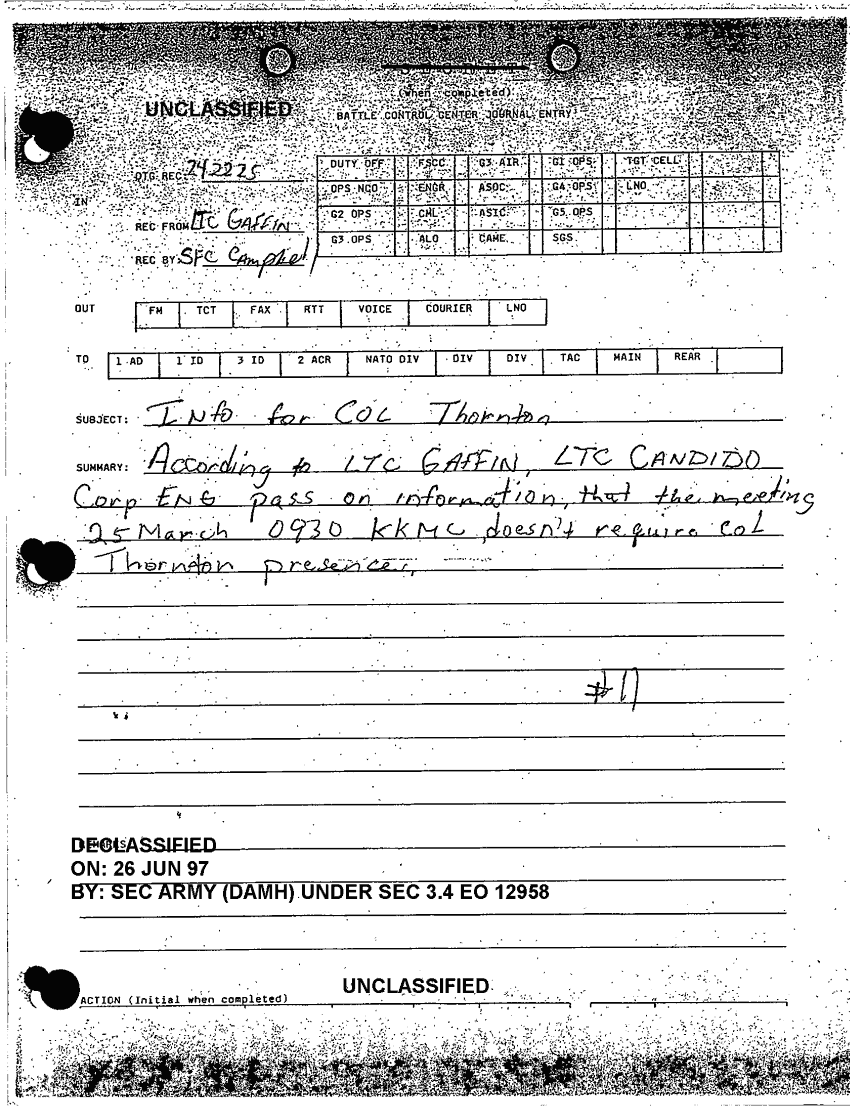 (when completed)
UNCLASSIFIED
BATTLE CONTROL CENTER JOURNAL ENTRY
DTG REC 242225
DUTY OFF FSCC G3 AIR G1 OPS TGT CELL
IN
OPS NCO ENGR ASOC G4 OPS LNO
REC FROM LTC GAFFIN
G2 OPS CML ASIC G5 OPS
G3 OPS ALO CAME SGS
REC BY: SFC Campbell
OUT FM TCT FAX RTT VOICE COURIER LNO
TO 1 AD 1 ID 3 ID 2 ACR NATO DIV DIV DIV TAC MAIN REAR
SUBJECT: Info for COL Thornton
SUMMARY: According to LTC GAFFIN, LTC CANDIDO
Corp ENG pass on information, that the meeting
25 March 0930 KKMC doesn't require COL
Thornton presences,
#11
DECLASSIFIED
ON: 26 JUN 97
BY: SEC ARMY (DAMH) UNDER SEC 3.4 EO 12958
UNCLASSIFIED
ACTION (Initial when completed)